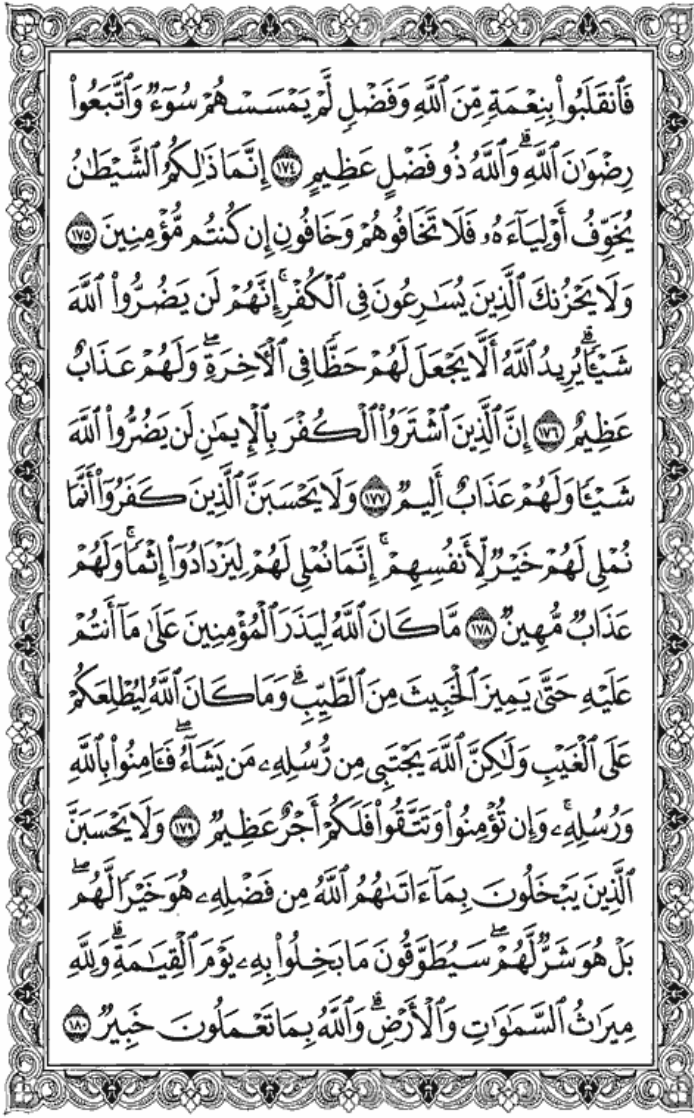 فَٱنقَلَبُوا۟ بِنِعْمَةٍ مِّنَ ٱللَّهِ وَفَضْلٍ لَّمْ يَمْسَسْهُمْ سُوٓءٌ وَٱتَّبَعُوا۟
رِضْوَٰنَ ٱللَّهِ ۗ وَٱللَّهُ ذُو فَضْلٍ عَظِيمٍ ١٧٤ إِنَّمَا ذَٰلِكُمُ ٱلشَّيْطَٰنُ
يُخَوِّفُ أَوْلِيَآءَهُۥ فَلَا تَخَافُوهُمْ وَخَافُونِ إِن كُنتُم مُّؤْمِنِينَ ١٧٥
وَلَا يَحْزُنكَ ٱلَّذِينَ يُسَٰرِعُونَ فِى ٱلْكُفْرِ ۚ إِنَّهُمْ لَن يَضُرُّوا۟ ٱللَّهَ
شَيْـًٔا ۗ يُرِيدُ ٱللَّهُ أَلَّا يَجْعَلَ لَهُمْ حَظًّا فِى ٱلْـَٔاخِرَةِ ۖ وَلَهُمْ عَذَابٌ
عَظِيمٌ ١٧٦ إِنَّ ٱلَّذِينَ ٱشْتَرَوُا۟ ٱلْكُفْرَ بِٱلْإِيمَٰنِ لَن يَضُرُّوا۟ ٱللَّهَ
شَيْـًٔا وَلَهُمْ عَذَابٌ أَلِيمٌ ١٧٧ وَلَا يَحْسَبَنَّ ٱلَّذِينَ كَفَرُوٓا۟ أَنَّمَا
نُمْلِى لَهُمْ خَيْرٌ لِّأَنفُسِهِمْ ۚ إِنَّمَا نُمْلِى لَهُمْ لِيَزْدَادُوٓا۟ إِثْمًا ۚ وَلَهُمْ
عَذَابٌ مُّهِينٌ ١٧٨ مَّا كَانَ ٱللَّهُ لِيَذَرَ ٱلْمُؤْمِنِينَ عَلَىٰ مَآ أَنتُمْ
عَلَيْهِ حَتَّىٰ يَمِيزَ ٱلْخَبِيثَ مِنَ ٱلطَّيِّبِ ۗ وَمَا كَانَ ٱللَّهُ لِيُطْلِعَكُمْ
عَلَى ٱلْغَيْبِ وَلَٰكِنَّ ٱللَّهَ يَجْتَبِى مِن رُّسُلِهِۦ مَن يَشَآءُ ۖ فَـَٔامِنُوا۟ بِٱللَّهِ
وَرُسُلِهِۦ ۚ وَإِن تُؤْمِنُوا۟ وَتَتَّقُوا۟ فَلَكُمْ أَجْرٌ عَظِيمٌ ١٧٩ وَلَا يَحْسَبَنَّ
ٱلَّذِينَ يَبْخَلُونَ بِمَآ ءَاتَىٰهُمُ ٱللَّهُ مِن فَضْلِهِۦ هُوَ خَيْرًا لَّهُم ۖ
بَلْ هُوَ شَرٌّ لَّهُمْ ۖ سَيُطَوَّقُونَ مَا بَخِلُوا۟ بِهِۦ يَوْمَ ٱلْقِيَٰمَةِ ۗ وَلِلَّهِ
مِيرَٰثُ ٱلسَّمَٰوَٰتِ وَٱلْأَرْضِ ۗ وَٱللَّهُ بِمَا تَعْمَلُونَ خَبِيرٌ ١٨٠